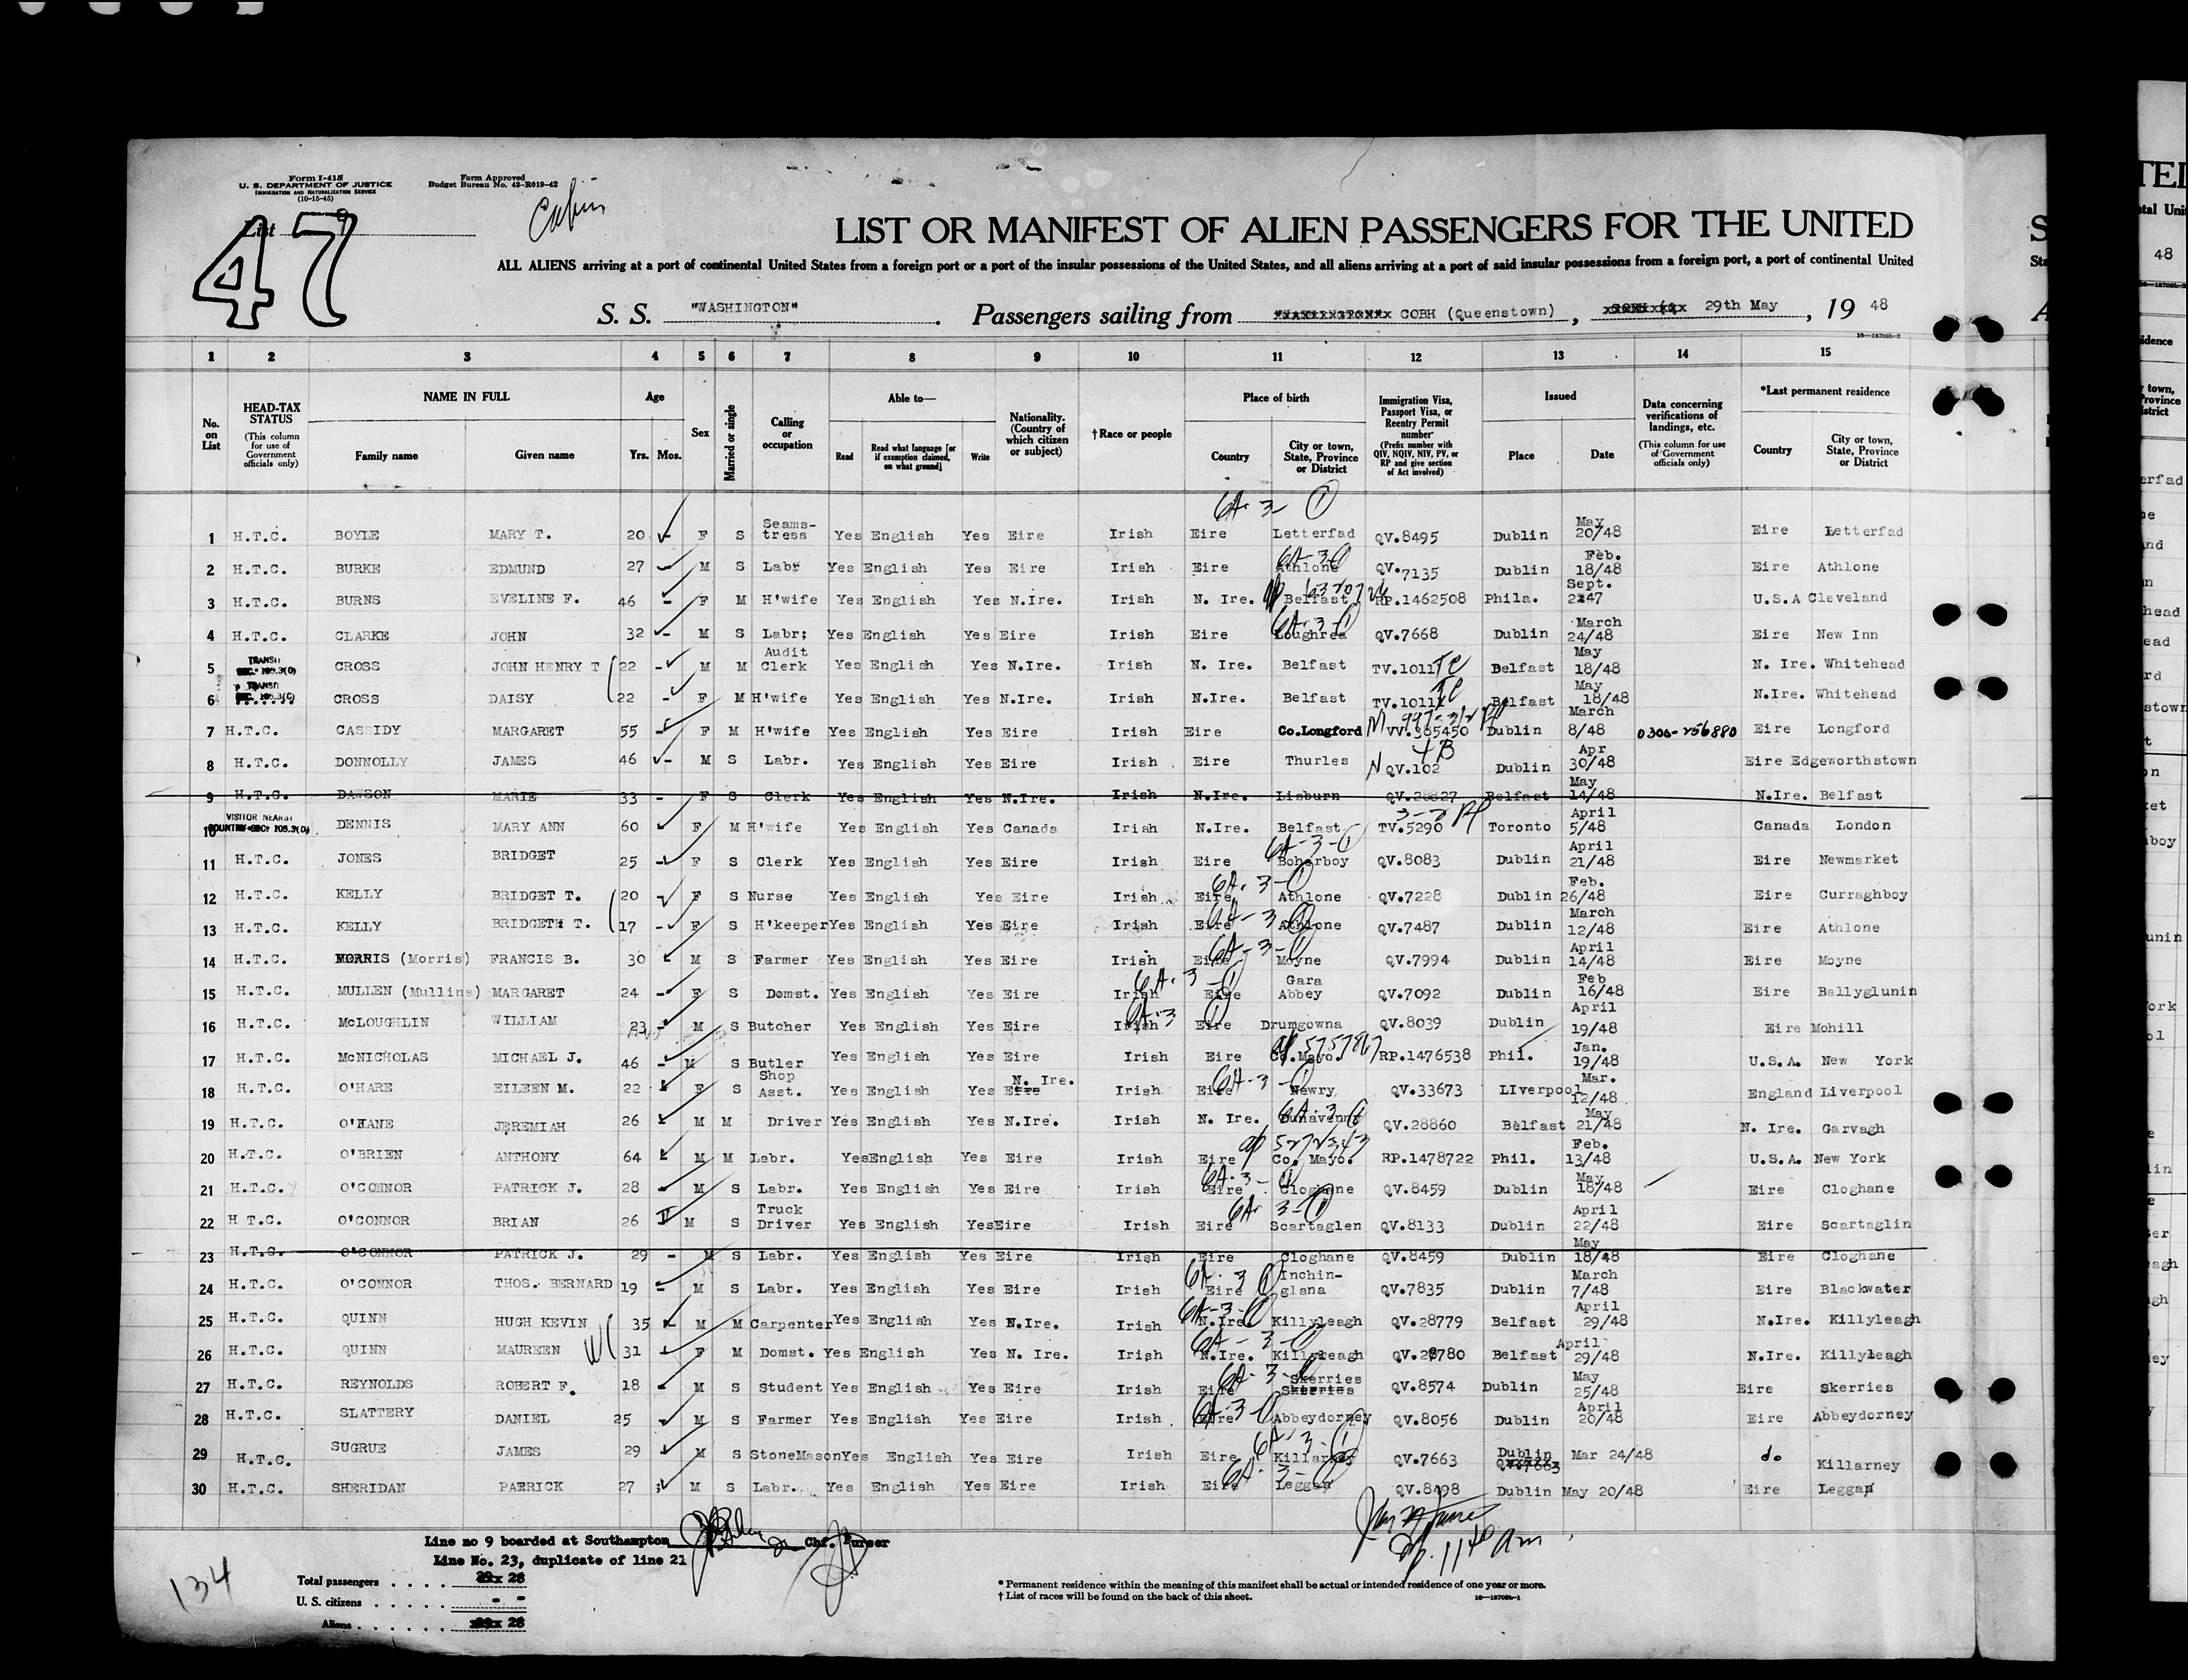 Form I-415
U. S. DEPARTMENT OF JUSTICE
IMMIGRATION AND NATURALIZATION SERVICE
(10-15-45)
Form Approved
Budget Bureau No. 43-R019-42
Cabin
List
47
LIST OR MANIFEST OF ALIEN PASSENGERS FOR THE UNITED
ALL ALIENS arriving at a port of continental United States from a foreign port or a port of the insular possessions of the United States, and all aliens arriving at a port of said insular possessions from a foreign port, a port of continental United
S. S. "WASHINGTON" . Passengers sailing from COBH (Queenstown) , 29th May , 19 48
1 2 3 4 5 6 7 8 9 10 11 12 13 14 15
No. on List
HEAD-TAX STATUS (This column for use of Government officials only)
NAME IN FULL Family name Given name
Age Yrs. Mos.
Sex
Married or single
Calling or occupation
Able to— Read Read what language [or if exemption claimed, on what ground] Write
Nationality. (Country of which citizen or subject)
†Race or people
Place of birth Country City or town, State, Province or District
Immigration Visa, Passport Visa, or Reentry Permit number (Prefix number with QIV, NQIV, NIV, PV, or RP and give section of Act involved)
Issued Place Date
Data concerning verifications of landings, etc. (This column for use of Government officials only)
*Last permanent residence Country City or town, State, Province or District
6A-3-1
1 H.T.C. BOYLE MARY T. 20 - F S Seams-tress Yes English Yes Eire Irish Eire Letterfad QV.8495 Dublin May 20/48 Eire Letterfad
2 H.T.C. BURKE EDMUND 27 M S Labr Yes English Yes Eire Irish Eire Athlone QV.7135 Dublin Feb. 18/48 Eire Athlone
3 H.T.C. BURNS EVELINE F. 46 - F M H'wife Yes English Yes N.Ire. Irish N. Ire. Belfast RP.1462508 Phila. Sept. U.S.A Cleveland
4 H.T.C. CLARKE JOHN 32 - M S Labr; Yes English Yes Eire Irish Eire Loughrea QV.7668 Dublin March 24/48 Eire New Inn
5 CROSS JOHN HENRY T 22 - M M Audit Clerk Yes English Yes N.Ire. Irish N. Ire. Belfast TV.1011 Belfast May 18/48 N. Ire. Whitehead
6 CROSS DAISY 22 - F M H'wife Yes English Yes N.Ire. Irish N.Ire. Belfast TV.1011 Belfast May 18/48 N.Ire. Whitehead
7 H.T.C. CASSIDY MARGARET 55 - F M H'wife Yes English Yes Eire Irish Eire Co.Longford VV.365450 Dublin March 8/48 0300-256880 Eire Longford
8 H.T.C. DONNOLLY JAMES 46 - M S Labr. Yes English Yes Eire Irish Eire Thurles QV.102 Dublin Apr 30/48 Eire Edgeworthstown
9 H.T.C. DAWSON MARIE 33 - F S Clerk Yes English Yes N.Ire. Irish N.Ire. Lisburn QV.28827 Belfast May 14/48 N.Ire. Belfast
10 DENNIS MARY ANN 60 F M H'wife Yes English Yes Canada Irish N.Ire. Belfast TV.5290 Toronto April 5/48 Canada London
11 H.T.C. JONES BRIDGET 25 - F S Clerk Yes English Yes Eire Irish Eire Boherboy QV.8083 Dublin April 21/48 Eire Newmarket
12 H.T.C. KELLY BRIDGET T. 20 - F S Nurse Yes English Yes Eire Irish Eire Athlone QV.7228 Dublin Feb. 26/48 Eire Curraghboy
13 H.T.C. KELLY BRIDGETH T. 17 - F S H'keeper Yes English Yes Eire Irish Eire Athlone QV.7487 Dublin March 12/48 Eire Athlone
14 H.T.C. (Morris) FRANCIS B. 30 M S Farmer Yes English Yes Eire Irish Eire Moyne QV.7994 Dublin April 14/48 Eire Moyne
15 H.T.C. MULLEN (Mullins) MARGARET 24 - F S Domst. Yes English Yes Eire Irish Eire Gara Abbey QV.7092 Dublin Feb 16/48 Eire Ballyglunin
16 H.T.C. McLOUGHLIN WILLIAM 23 - M S Butcher Yes English Yes Eire Irish Eire Drumgowna QV.8039 Dublin April 19/48 Eire Mohill
17 H.T.C. McNICHOLAS MICHAEL J. 46 - M S Butler Yes English Yes Eire Irish Eire Co.Mayo. RP.1476538 Phil. Jan. 19/48 U.S.A. New York
18 H.T.C. O'HARE EILEEN M. 22 F S Shop Asst. Yes English Yes N. Ire. Irish Eire Newry QV.33673 LIverpool Mar. 12/48 England Liverpool
19 H.T.C. O'KANE JEREMIAH 26 M M Driver Yes English Yes N.Ire. Irish N. Ire. QV.28860 Belfast May 21/48 N. Ire. Garvagh
20 H.T.C. O'BRIEN ANTHONY 64 M M Labr. Yes English Yes Eire Irish Eire Co. Mayo. RP.1478722 Phil. Feb. 13/48 U.S.A. New York
21 H.T.C. O'CONNOR PATRICK J. 28 M S Labr. Yes English Yes Eire Irish Eire Cloghane QV.8459 Dublin May 18/48 Eire Cloghane
22 H T.C. O'CONNOR BRIAN 26 M S Truck Driver Yes English Yes Eire Irish Eire Scartaglen QV.8133 Dublin April 22/48 Eire Scartaglin
23 H.T.C. O'CONNOR PATRICK J. 29 - M S Labr. Yes English Yes Eire Irish Eire Cloghane QV.8459 Dublin May 18/48 Eire Cloghane
24 H.T.C. O'CONNOR THOS. BERNARD 19 - M S Labr. Yes English Yes Eire Irish Eire Inchin-glana QV.7835 Dublin March 7/48 Eire Blackwater
25 H.T.C. QUINN HUGH KEVIN 35 M M Carpenter Yes English Yes N.Ire. Irish N.Ire Killyleagh QV.28779 Belfast April 29/48 N.Ire. Killyleagh
26 H.T.C. QUINN MAUREEN 31 F M Domst. Yes English Yes N. Ire. Irish N.Ire. Killyleagh QV.28780 Belfast April 29/48 N.Ire. Killyleagh
27 H.T.C. REYNOLDS ROBERT F. 18 M S Student Yes English Yes Eire Irish Eire Skerries Skerries QV.8574 Dublin May 25/48 Eire Skerries
28 H.T.C. SLATTERY DANIEL 25 M S Farmer Yes English Yes Eire Irish Eire Abbeydorney QV.8056 Dublin April 20/48 Eire Abbeydorney
29 H.T.C. SUGRUE JAMES 29 M S StoneMason Yes English Yes Eire Irish Eire Killarney QV.7663 Dublin Mar 24/48 do Killarney
30 H.T.C. SHERIDAN PATRICK 27 M S Labr. Yes English Yes Eire Irish Eire Leggan QV.8498 Dublin May 20/48 Eire Leggan
Line no 9 boarded at Southampton Chf. Purser
Line No. 23, duplicate of line 21
Total passengers . . . . 28
U. S. citizens . . . . . . - -
Aliens . . . . . . 28
134
11 40 am
* Permanent residence within the meaning of this manifest shall be actual or intended residence of one year or more.
† List of races will be found on the back of this sheet.